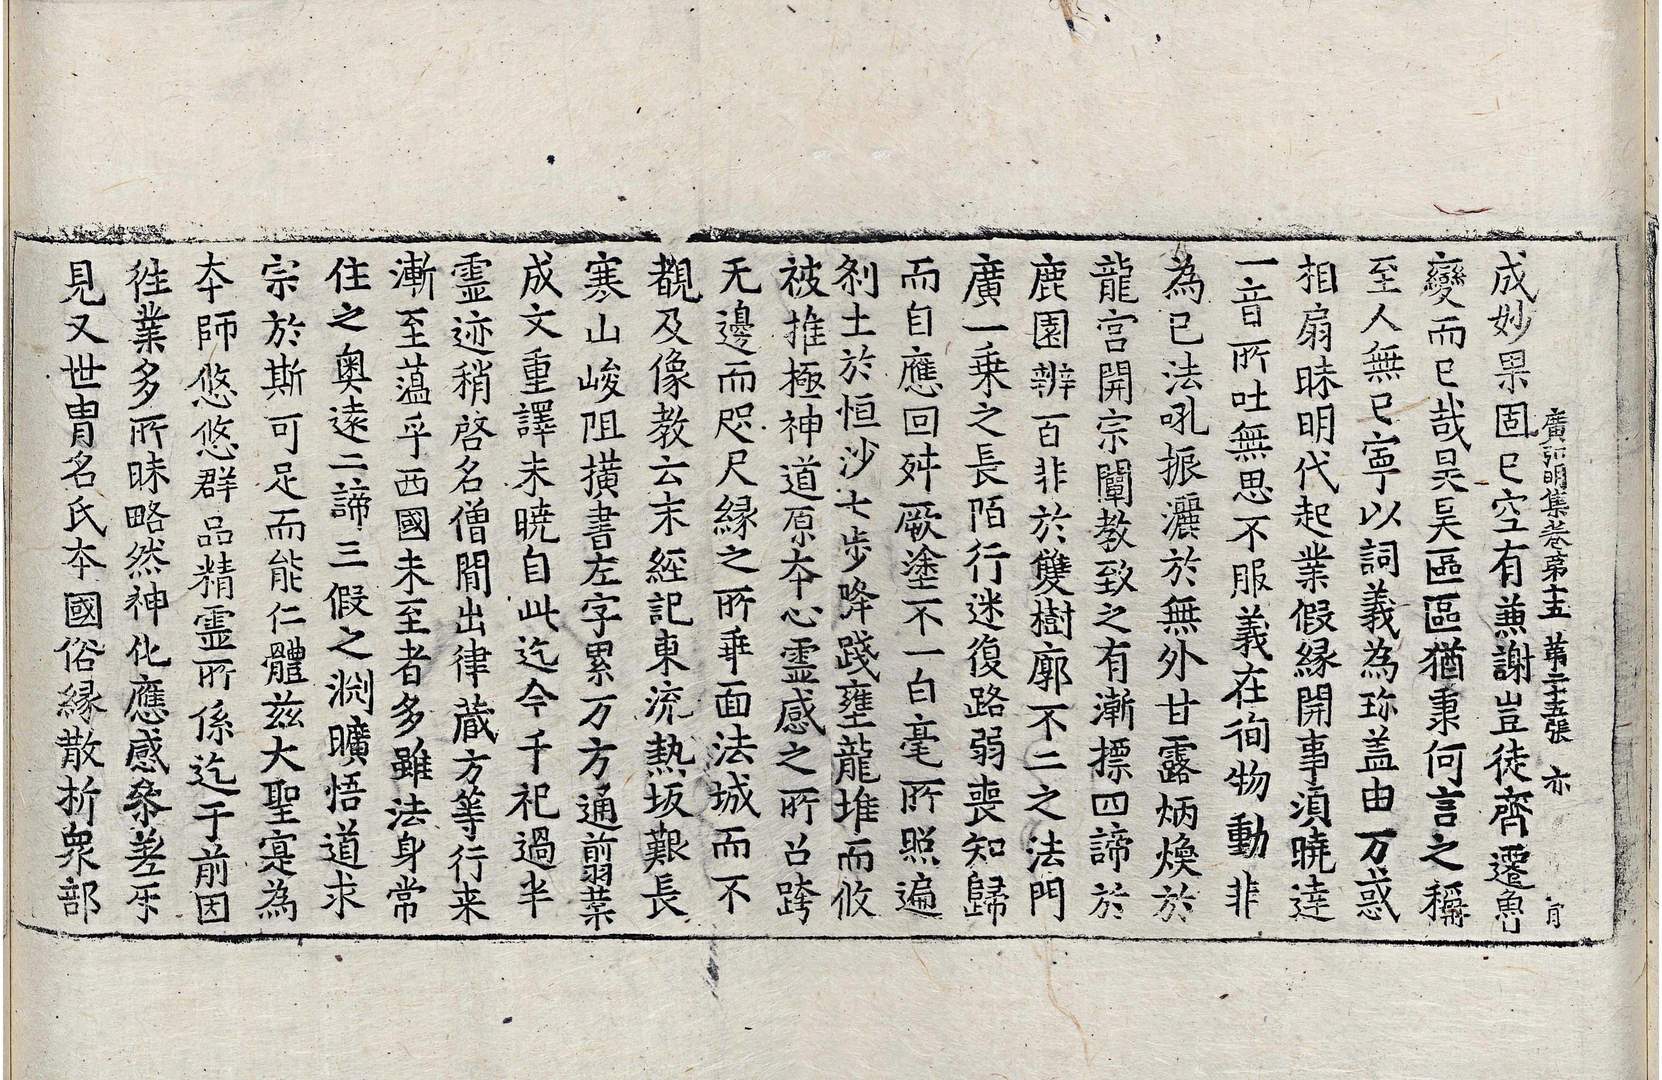 廣弘明集卷苐十五 苐二十五張 亦
成妙果固已空有兼謝豈徒齊遷魯
變而已哉昊昊區區猶秉何言之稱
至人無已寧以詞義為珎盖由万惑
相扇昧明代起業假緣開事湏曉逹
一音所吐無思不服義在徇物動非
為已法吼振灑於無外甘露炳煥於
龍宫開宗闡教致之有漸摽四諦於
鹿園辨百非於雙樹廓不二之法門
廣一乗之長陌行迷復路弱喪知歸
而自應回舛厥塗不一白毫所照遍
刹土於恒沙七步降踐壅龍堆而攸
被推極神道原夲心靈感之所召跨
无邊而咫尺縁之所乖面法城而不
覩及像教云末經記東流熱坂艱長
寒山峻阻橫書左字累万方通翦葉
成文重譯未曉自此迄今千祀過半
靈迹稍啓名僧間出律蔵方等行来
漸至薀乎西國未至者多雖法身常
住之奥遠二諦三假之渕曠悟道求
宗於斯可足而能仁體兹大聖寔為
夲師悠悠群品精靈所係迄于前因
徃業多所昧略然神化應感叅差不
見又世胄名氏夲國俗緣散析衆部